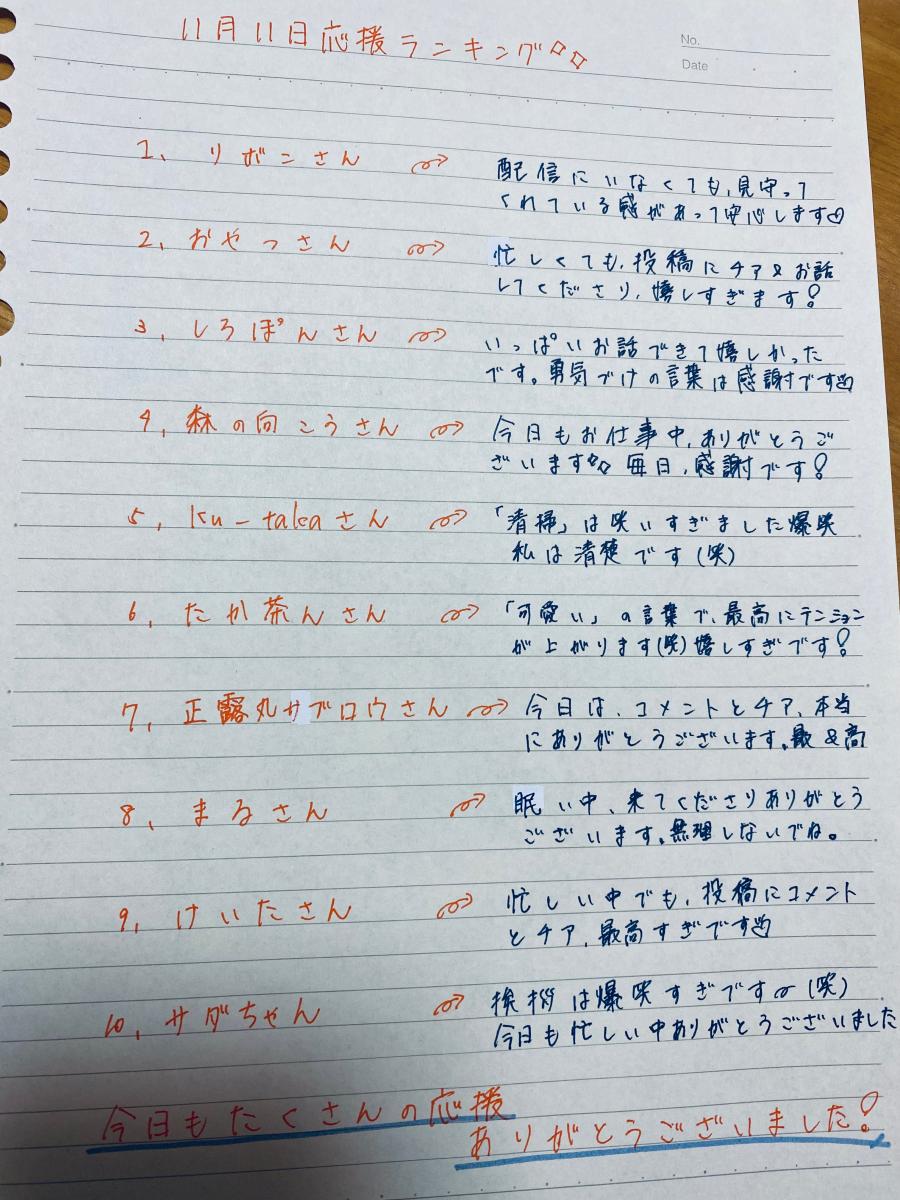 11月11日応援ランキング✧✧
No.
Date
1、リボンさん
配信にいなくても、見守って
くれている感があって安心します♡
2、おやつさん
忙しくても、投稿にチア&お話
してくださり、嬉しすぎます!
3、しろぽんさん
いっぱいお話できて嬉しかった
です。勇気づけの言葉は感謝です
4、森の向こうさん
今日もお仕事中、ありがとうご
ざいます✧✧ 毎日、感謝です!
5、ku-takaさん
「清掃」は咲いすぎました爆咲
私は清楚です(笑)
6、たか茶んさん
「可愛い」の言葉で、最高にテンション
が上がります(笑)嬉しすぎです!
7、正露丸サブロウさん
今日は、コメントとチア、本当
にありがとうございます。最&高
8、まるさん
眠い中、来てくださりありがとう
ございます。無理しないでね。
9、けいたさん
忙しい中でも、投稿にコメント
とチア、最高すぎです
10、サダちゃん
挨拶は爆咲すぎです(笑)
今日も忙しい中ありがとうございました
今日もたくさんの応援
ありがとうございました!